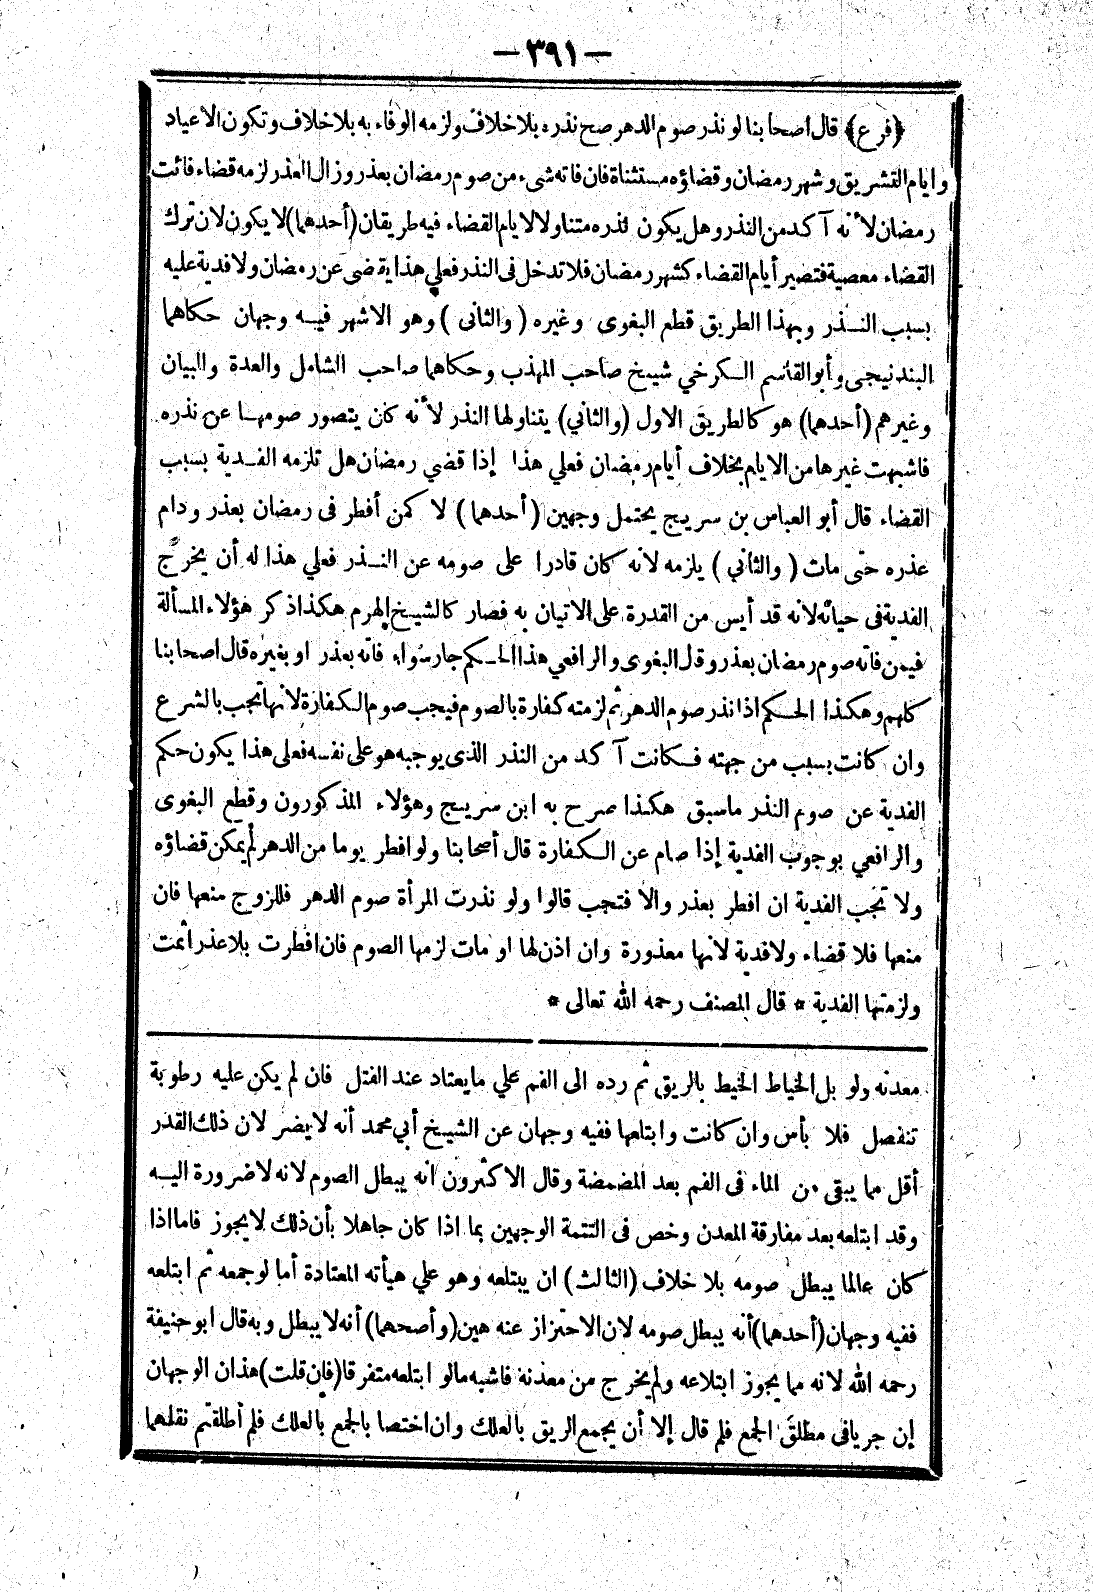 — ٣٩١ —
﴿فرع﴾ قال اصحابنا لو نذر صوم الدهر صح نذره بلا خلاف ولزمه الوفاء به بلا خلاف وتكون الاعياد
وايام التشريق وشهر رمضان وقضاؤه مستثناة فان فاته شىء من صوم رمضان بعذر وزال العذر لزمه قضاء فائت
رمضان لأنه آكد من النذر وهل يكون نذره متناولا لايام القضاء فيه طريقان (أحدهما) لا يكون لان ترك
القضاء معصية فتصير أيام القضاء كشهر رمضان فلا تدخل فى النذر فعلي هذا يقضى عن رمضان ولا فدية عليه
بسبب النـذر وبهذا الطريق قطع البغوى وغيره (والثانى) وهو الاشهر فيـه وجهان حكاهما
البندنيجى وأبو القاسم الكرخي شيخ صاحب المهذب وحكاهما صاحب الشامل والعدة والبيان
وغيرهم (أحدهما) هو كالطريق الاول (والثاني) يتناولها النذر لأنه كان يتصور صومهـا عن نذره
فاشبهت غيرها من الايام بخلاف أيام رمضان فعلي هذا إذا قضي رمضان هل تلزمه الفـدية بسبب
القضاء قال أبو العباس بن سريج يحتمل وجهين (أحدهما) لا كمن أفطر فى رمضان بعذر ودام
عذره حتى مات (والثاني) يلزمه لانه كان قادرا على صومه عن النـذر فعلي هذا له أن يخرج
الفدية فى حياته لانه قد أيس من القدرة على الاتيان به فصار كالشيخ الهرم هكذا ذكر هؤلاء المسألة
فيمن فاته صوم رمضان بعذر وقال البغوى والرافعي هذا الحـكم جار سواء فاته بعذر او بغيره قال اصحابنا
كلهم وهكذا الحـكم اذا نذر صوم الدهر ثم لزمته كفارة بالصوم فيجب صوم الكفارة لانها تجب بالشرع
وان كانت بسبب من جهته فـكانت آكد من النذر الذى يوجبه هو على نفسه فعلى هذا يكون حكم
الفدية عن صوم النذر ماسبق هكذا صرح به ابن سريج وهؤلاء المذكورون وقطع البغوى
والرافعي بوجوب الفدية إذا صام عن الكفارة قال أصحابنا ولو افطر يوما من الدهر لم يمكن قضاؤه
ولا تجب الفدية ان افطر بعذر والا فتجب قالوا ولو نذرت المرأة صوم الدهر فللزوج منعها فان
منعها فلا قضاء ولا فدية لانها معذورة وان اذن لها او مات لزمها الصوم فان افطرت بلا عذر أثمت
ولزمتها الفدية * قال المصنف رحمه الله تعالى *
معدنه ولو بل الخياط الخيط بالريق ثم رده الى الفم علي ما يعتاد عند الفتل فان لم يكن عليه رطوبة
تنفصل فلا بأس وان كانت وابتلعها ففيه وجهان عن الشيخ أبي محمد أنه لا يضر لان ذلك القدر
أقل مما يبقى من الماء فى الفم بعد المضمضة وقال الاكثرون انه يبطل الصوم لانه لا ضرورة اليـه
وقد ابتلعه بعد مفارقة المعدن وخص فى التتمة الوجهين بما اذا كان جاهلا بأن ذلك لا يجوز فاما اذا
كان عالما يبطل صومه بلا خلاف (الثالث) ان يبتلعه وهو علي هيأته المعتادة أما لو جمعه ثم ابتلعه
ففيه وجهان (أحدهما) أنه يبطل صومه لان الاحتراز عنه هين (وأصحهما) أنه لا يبطل وبه قال ابو حنيفة
رحمه الله لانه مما يجوز ابتلاعه ولم يخرج من معدنه فاشبه مالو ابتلعه متفرقا (فان قلت) هذان الوجهان
إن جريا فى مطلق الجمع فلم قال إلا أن يجمع الريق بالعلك وان اختصا بالجمع بالعلك فلم أطلقتم نقلهما